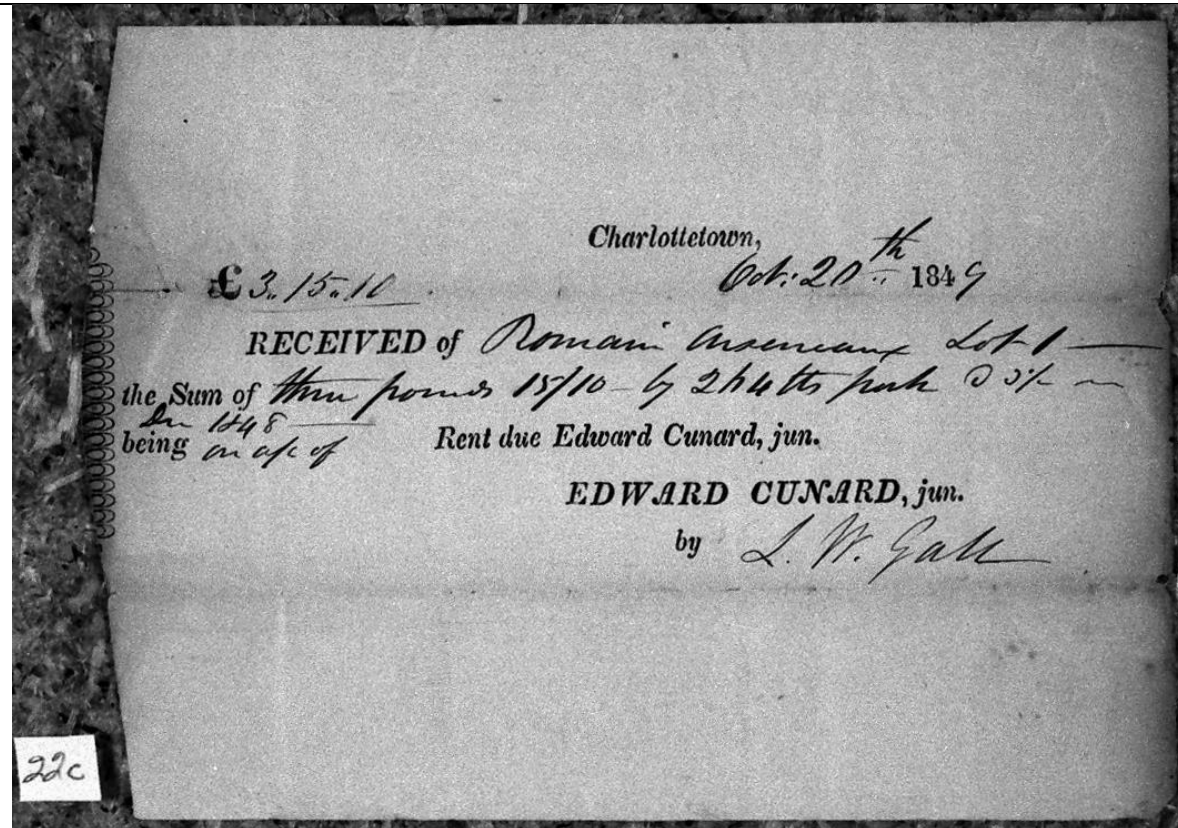 Charlottetown,
Oct: 20th 1849
£3. 15. 10
RECEIVED of Romain Arseneaux Lot 1
the Sum of three pounds 15/10 – by lbs pork
Due 1848
being on a/c of Rent due Edward Cunard, jun.
EDWARD CUNARD, jun.
by L. W. Gall
22c